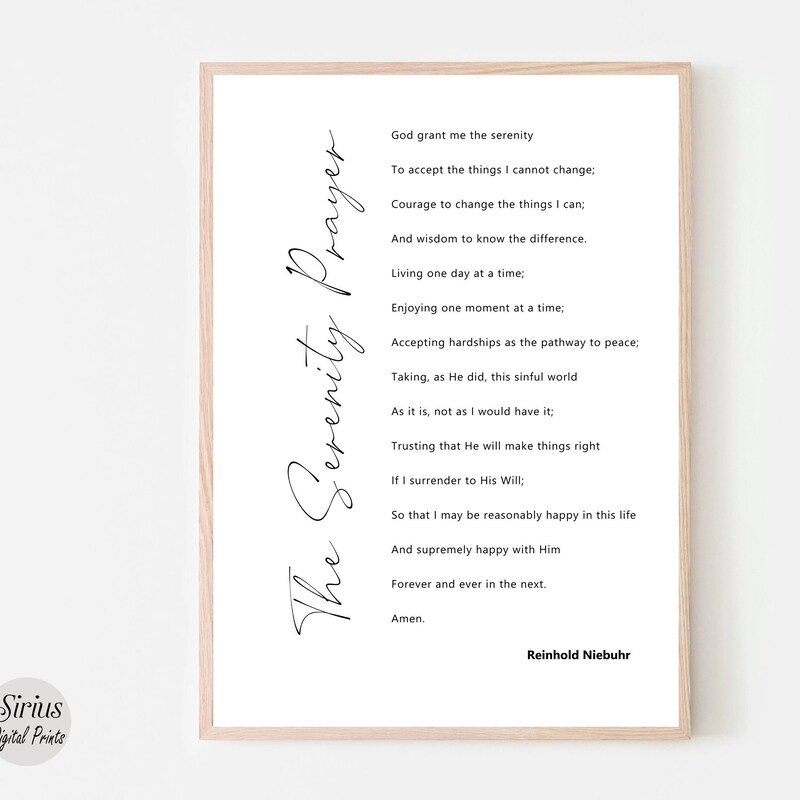 The Serenity Prayer
God grant me the serenity
To accept the things I cannot change;
Courage to change the things I can;
And wisdom to know the difference.
Living one day at a time;
Enjoying one moment at a time;
Accepting hardships as the pathway to peace;
Taking, as He did, this sinful world
As it is, not as I would have it;
Trusting that He will make things right
If I surrender to His Will;
So that I may be reasonably happy in this life
And supremely happy with Him
Forever and ever in the next.
Amen.
Reinhold Niebuhr
Sirius
Digital Prints